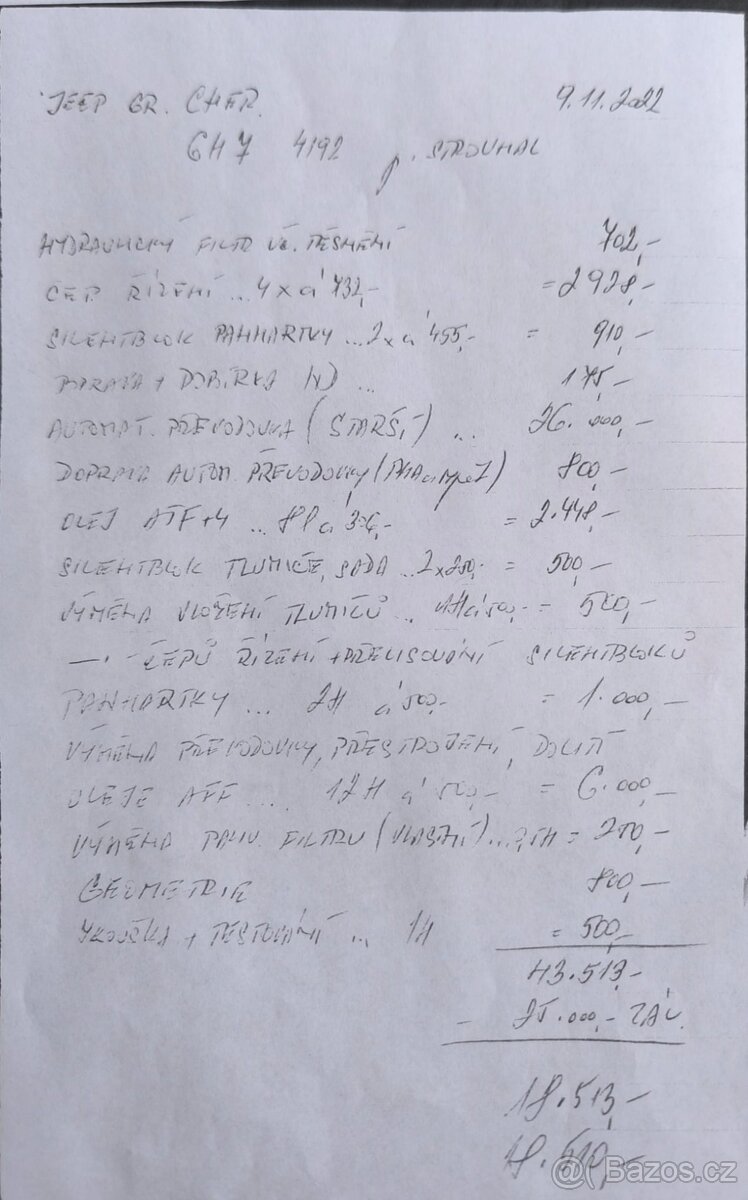 JEEP GR. CHER. 9.11.2022
6H7 4192 p. STROUHAL
HYDRAULICKÝ FILTR VČ. TĚSNĚNÍ 702,-
ČEP ŘÍZENÍ .. 4 x á 732,- = 2928,-
SILENTBLOK PANHARTKY ... 2 x á 455,- = 910,-
DOPRAVA + DOBÍRKA ND ... 175,-
AUTOMAT. PŘEVODOVKA (STARŠÍ) ... 26.000,-
DOPRAVA AUTOM. PŘEVODOVKY 800,-
OLEJ ATF+4 ... 8l á 306,- = 2.448,-
SILENTBLOK TLUMIČE, SADA .. 2x250,- = 500,-
VÝMĚNA ULOŽENÍ TLUMIČŮ .. 1H á 500,- = 500,-
—„— ČEPŮ ŘÍZENÍ + PŘELISOVÁNÍ SILENTBLOKŮ
PANHARTKY ... 2H á 500,- = 1.000,-
VÝMĚNA PŘEVODOVKY, PŘESTROJENÍ, DOLITÍ
OLEJE ATF ... 12H á 500,- = 6.000,-
VÝMĚNA PALIV. FILTRU (VLASTNÍ) ... = 250,-
GEOMETRIE 800,-
ZKOUŠKA + TESTOVÁNÍ ... 1H = 500,-
43.513,-
- 25.000,- ZÁL.
18.513,-
18.510,-
@( Bazos.cz